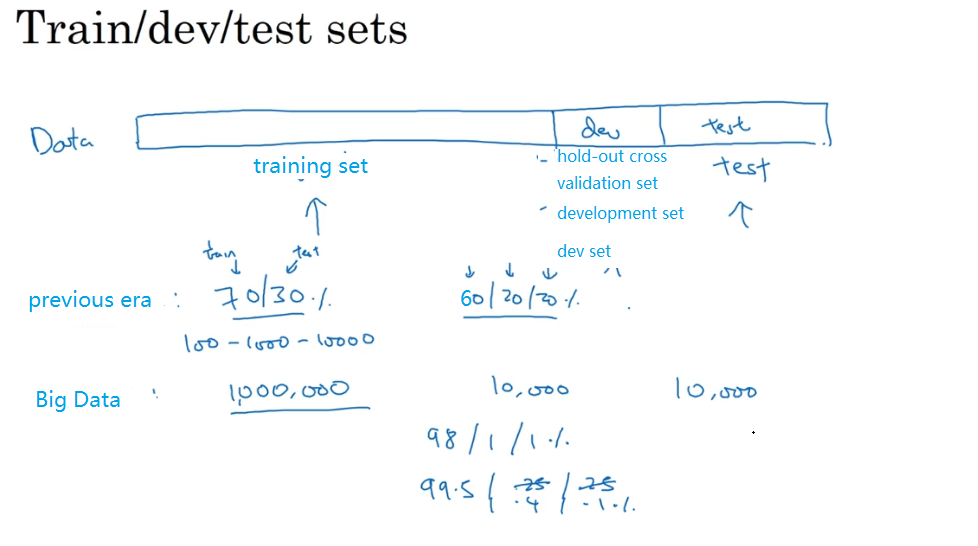 Train/dev/test sets
Data
dev
test
training set
hold-out cross
validation set
test
development set
dev set
train
test
previous era :
70/30 %
60/20/20 %
100 - 1000 - 10000
Big Data :
1,000,000
10,000
10,000
98 / 1 / 1 %
99.5 / .25 / .25
.4 .1 %